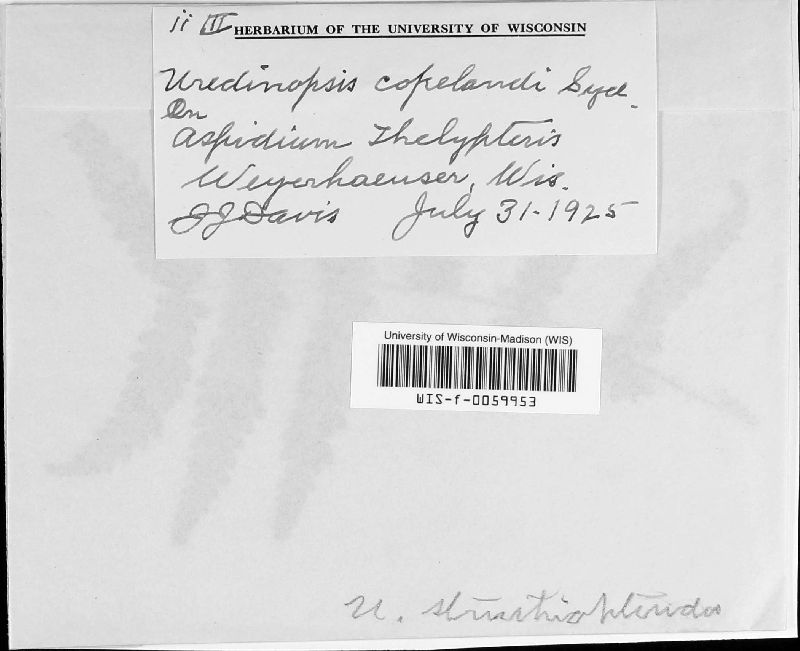 ii III HERBARIUM OF THE UNIVERSITY OF WISCONSIN
Uredinopsis copelandi Syd.
On
Aspidium Thelypteris
Weyerhaeuser, Wis.
JJ Davis July 31-1925
University of Wisconsin-Madison (WIS)
WIS-f-0059953
U.